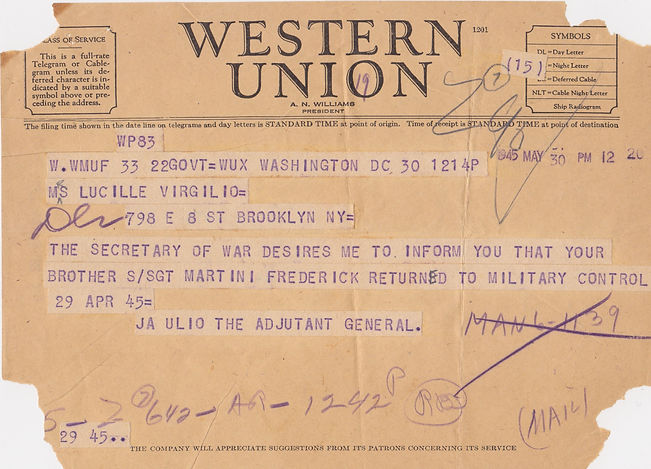 CLASS OF SERVICE
This is a full-rate
Telegram or Cable-
gram unless its de-
ferred character is in-
dicated by a suitable
symbol above or pre-
ceding the address.
WESTERN
UNION
1201
A. N. WILLIAMS
PRESIDENT
19
SYMBOLS
DL = Day Letter
= Night Letter
= Deferred Cable
NLT = Cable Night Letter
Ship Radiogram
(15)
The filing time shown in the date line on telegrams and day letters is STANDARD TIME at point of origin. Time of receipt is STANDARD TIME at point of destination
WP83
W.WMUF 33 22GOVT=WUX WASHINGTON DC 30 1214P
1945 MAY 30 PM 12 20
MS LUCILLE VIRGILIO=
798 E 8 ST BROOKLYN NY=
THE SECRETARY OF WAR DESIRES ME TO INFORM YOU THAT YOUR
BROTHER S/SGT MARTINI FREDERICK RETURNED TO MILITARY CONTROL
29 APR 45=
JA ULIO THE ADJUTANT GENERAL.
MAN 6-1139
1242 P
(MAIL)
29 45..
THE COMPANY WILL APPRECIATE SUGGESTIONS FROM ITS PATRONS CONCERNING ITS SERVICE